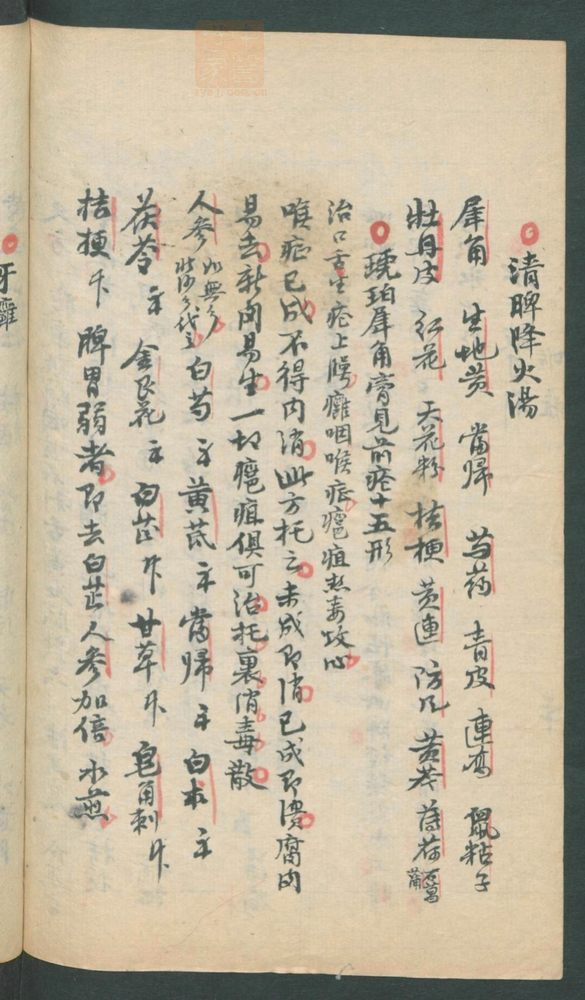 清脾降火湯
犀角 生地黄 當帰 芍药 青皮 連翹 鼠粘子
牡丹皮 红花 天花粉 桔梗 黄連 防風 黄芩 薄荷
琥珀犀角膏見前瘡十五形
治口舌生瘡上腭癰咽喉症瘡疽熱毒攻心
喉症已成不得内消此方托之未成即消已成即潰腐肉
易去新肉易生一切瘡疽俱可治托裏消毒散
人參 如無多 沙參代之 白芍 黄芪 當歸 白术
茯苓 金艮花 白芷 甘草 皂角刺
桔梗 脾胃弱者即去白芷人參加倍水煎
牙癰